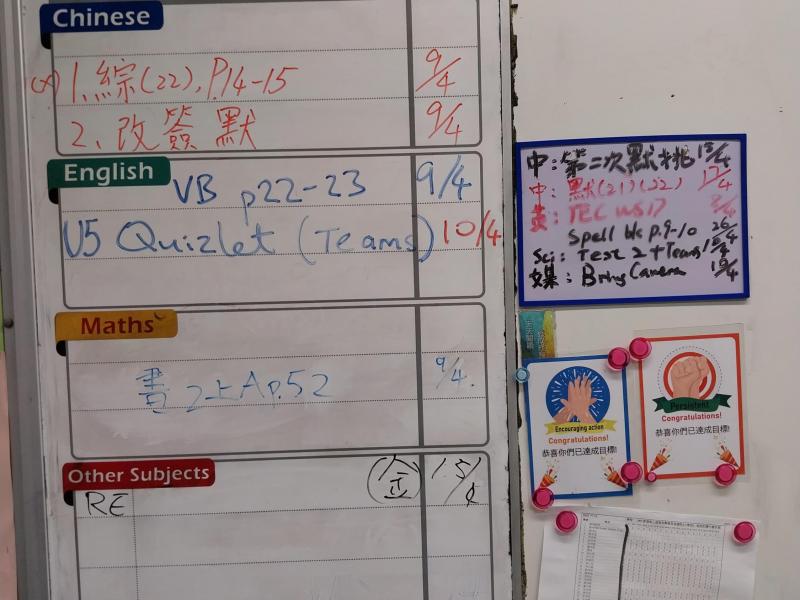 Chinese
(x) 1. 綜(22), P.14-15 9/4
2. 改簽默 9/4
English
VB p22-23 9/4
U5 Quizlet (Teams) 10/4
Maths
書 2上A p.52 9/4.
Other Subjects
RE (金) 15/4
中: 第二次默 15/4
中: 默(21)(22) 17/4
TEC WS17
Spell bk p.9-10 26/4
Sci: Test 2 + Teams
媒: Bring Camera 19/4
Encouraging action
Congratulations!
恭喜你們已達成目標!
Persistent
Congratulations!
恭喜你們已達成目標!